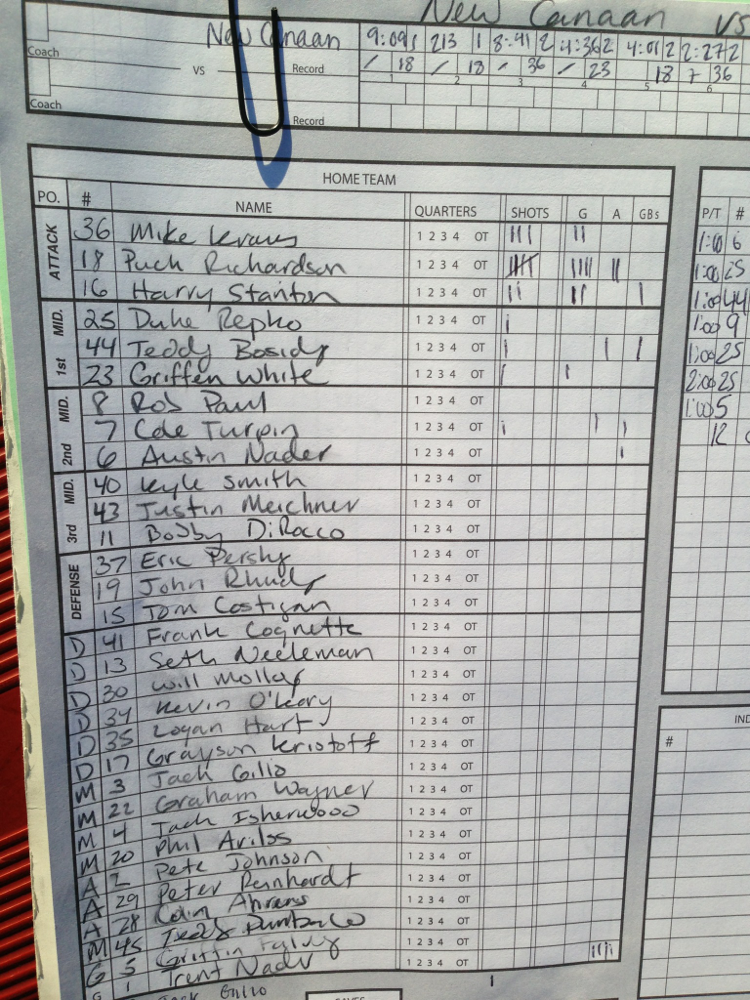 New Canaan VS
New Canaan 9:09 1 213 1 8:41 2 4:36 2 4:01 2 2:27 2
Coach
VS Record 18 18 36 23 18 7 36
1 2 3 4 5 6
Coach
Record
HOME TEAM
PO. # NAME QUARTERS SHOTS G A GBs P/T #
ATTACK
36 Mike Kraus 1 2 3 4 OT III II 1:00 6
18 Puck Richardson 1 2 3 4 OT IIII II 1:00 25
16 Harry Stanton 1 2 3 4 OT II II I 1:00 44
1st MID.
25 Duke Repko 1 2 3 4 OT I 1:00 9
44 Teddy Bossidy 1 2 3 4 OT I I I 1:00 25
23 Griffen White 1 2 3 4 OT I I 2:00 25
2nd MID.
8 Rob Paul 1 2 3 4 OT 1:00 5
7 Cole Turpin 1 2 3 4 OT I I I 12
6 Austin Nader 1 2 3 4 OT I
3rd MID.
40 Kyle Smith 1 2 3 4 OT
43 Justin Meichner 1 2 3 4 OT
11 Bobby DiRocco 1 2 3 4 OT
DEFENSE
37 Eric Pershy 1 2 3 4 OT
19 John Rhudy 1 2 3 4 OT
15 Tom Costigan 1 2 3 4 OT
D 41 Frank Cognetta 1 2 3 4 OT
D 13 Seth Neeleman 1 2 3 4 OT
D 30 Will Molloy 1 2 3 4 OT
D 34 Kevin O'Leary 1 2 3 4 OT
D 35 Logan Hart 1 2 3 4 OT
D 17 Grayson Kristoff 1 2 3 4 OT
M 3 Jack Gillo 1 2 3 4 OT
M 22 Graham Wagner 1 2 3 4 OT
M 4 Jack Isherwood 1 2 3 4 OT
M 20 Phil 1 2 3 4 OT
A 2 Pete Johnson 1 2 3 4 OT
A 29 Peter Reinhardt 1 2 3 4 OT
A 28 Ahrens 1 2 3 4 OT
M 45 Teddy 1 2 3 4 OT
G 5 Griffin 1 2 3 4 OT IIII
G 1 Trent 1 2 3 4 OT
IND
#